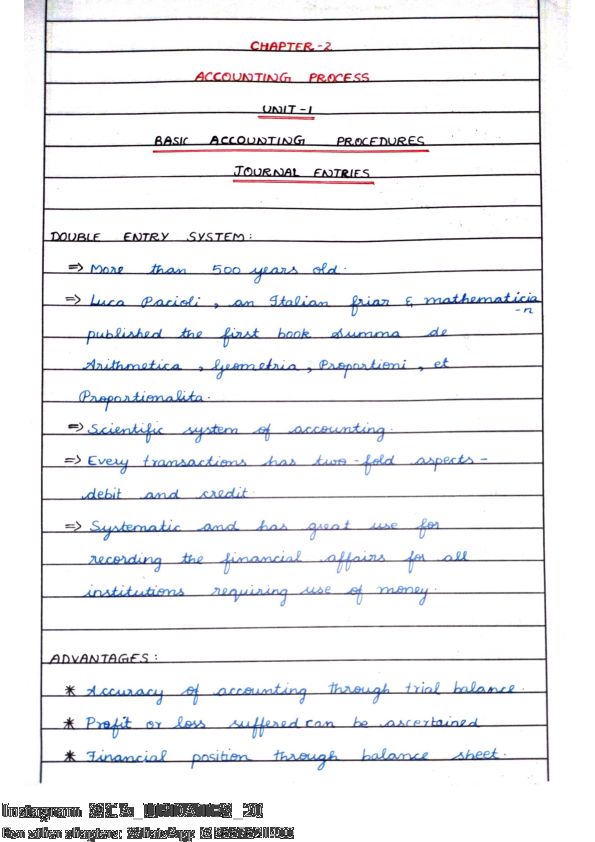 CHAPTER-2
ACCOUNTING PROCESS
UNIT-1
BASIC ACCOUNTING PROCEDURES
JOURNAL ENTRIES
DOUBLE ENTRY SYSTEM:
⇒ More than 500 years old.
⇒ Luca Pacioli, an Italian friar & mathematicia
-n
published the first book Summa de
Arithmetica, Geometria, Proportioni, et
Proportionalita.
⇒ Scientific system of accounting.
⇒ Every transactions has two-fold aspects-
debit and credit.
⇒ Systematic and has great use for
recording the financial affairs for all
institutions requiring use of money.
ADVANTAGES:
* Accuracy of accounting through trial balance.
* Profit or loss suffered can be ascertained
* Financial position through balance sheet.
Instagram